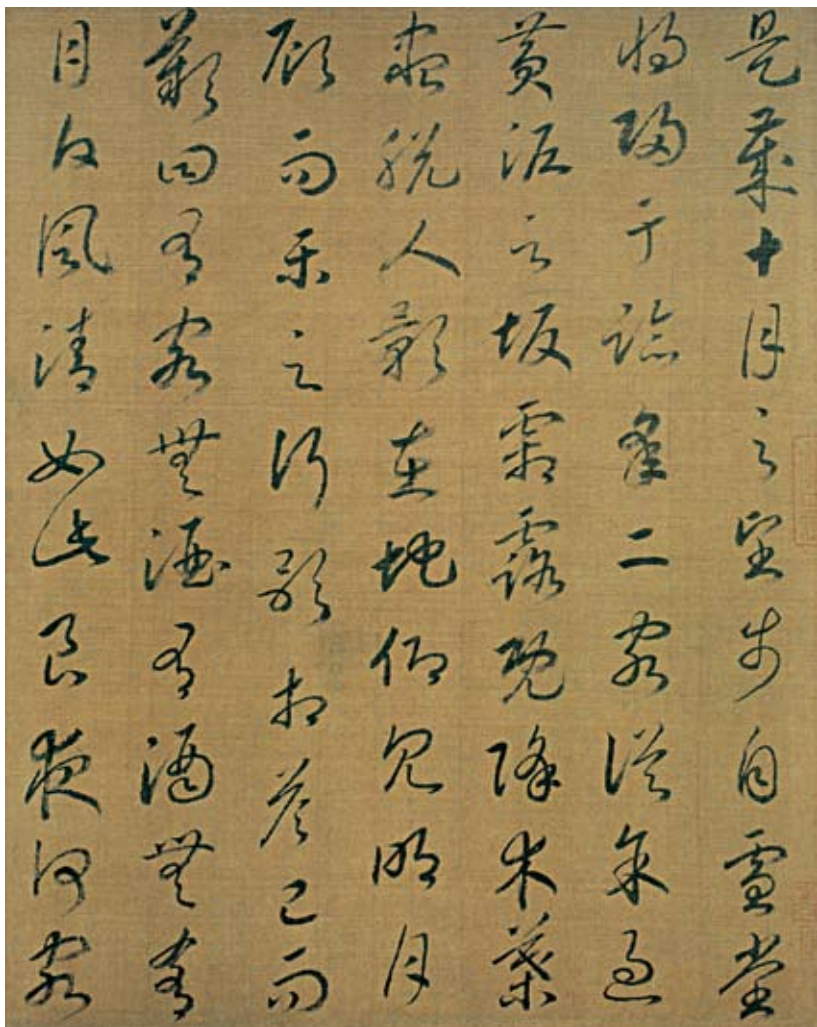 是歲十月之望步自雪堂
將歸于臨皋二客從余過
黃泥之坂霜露既降木葉
盡脫人影在地仰見明月
顧而樂之行歌相答已而
歎曰有客無酒有酒無肴
月白風清如此良夜何客